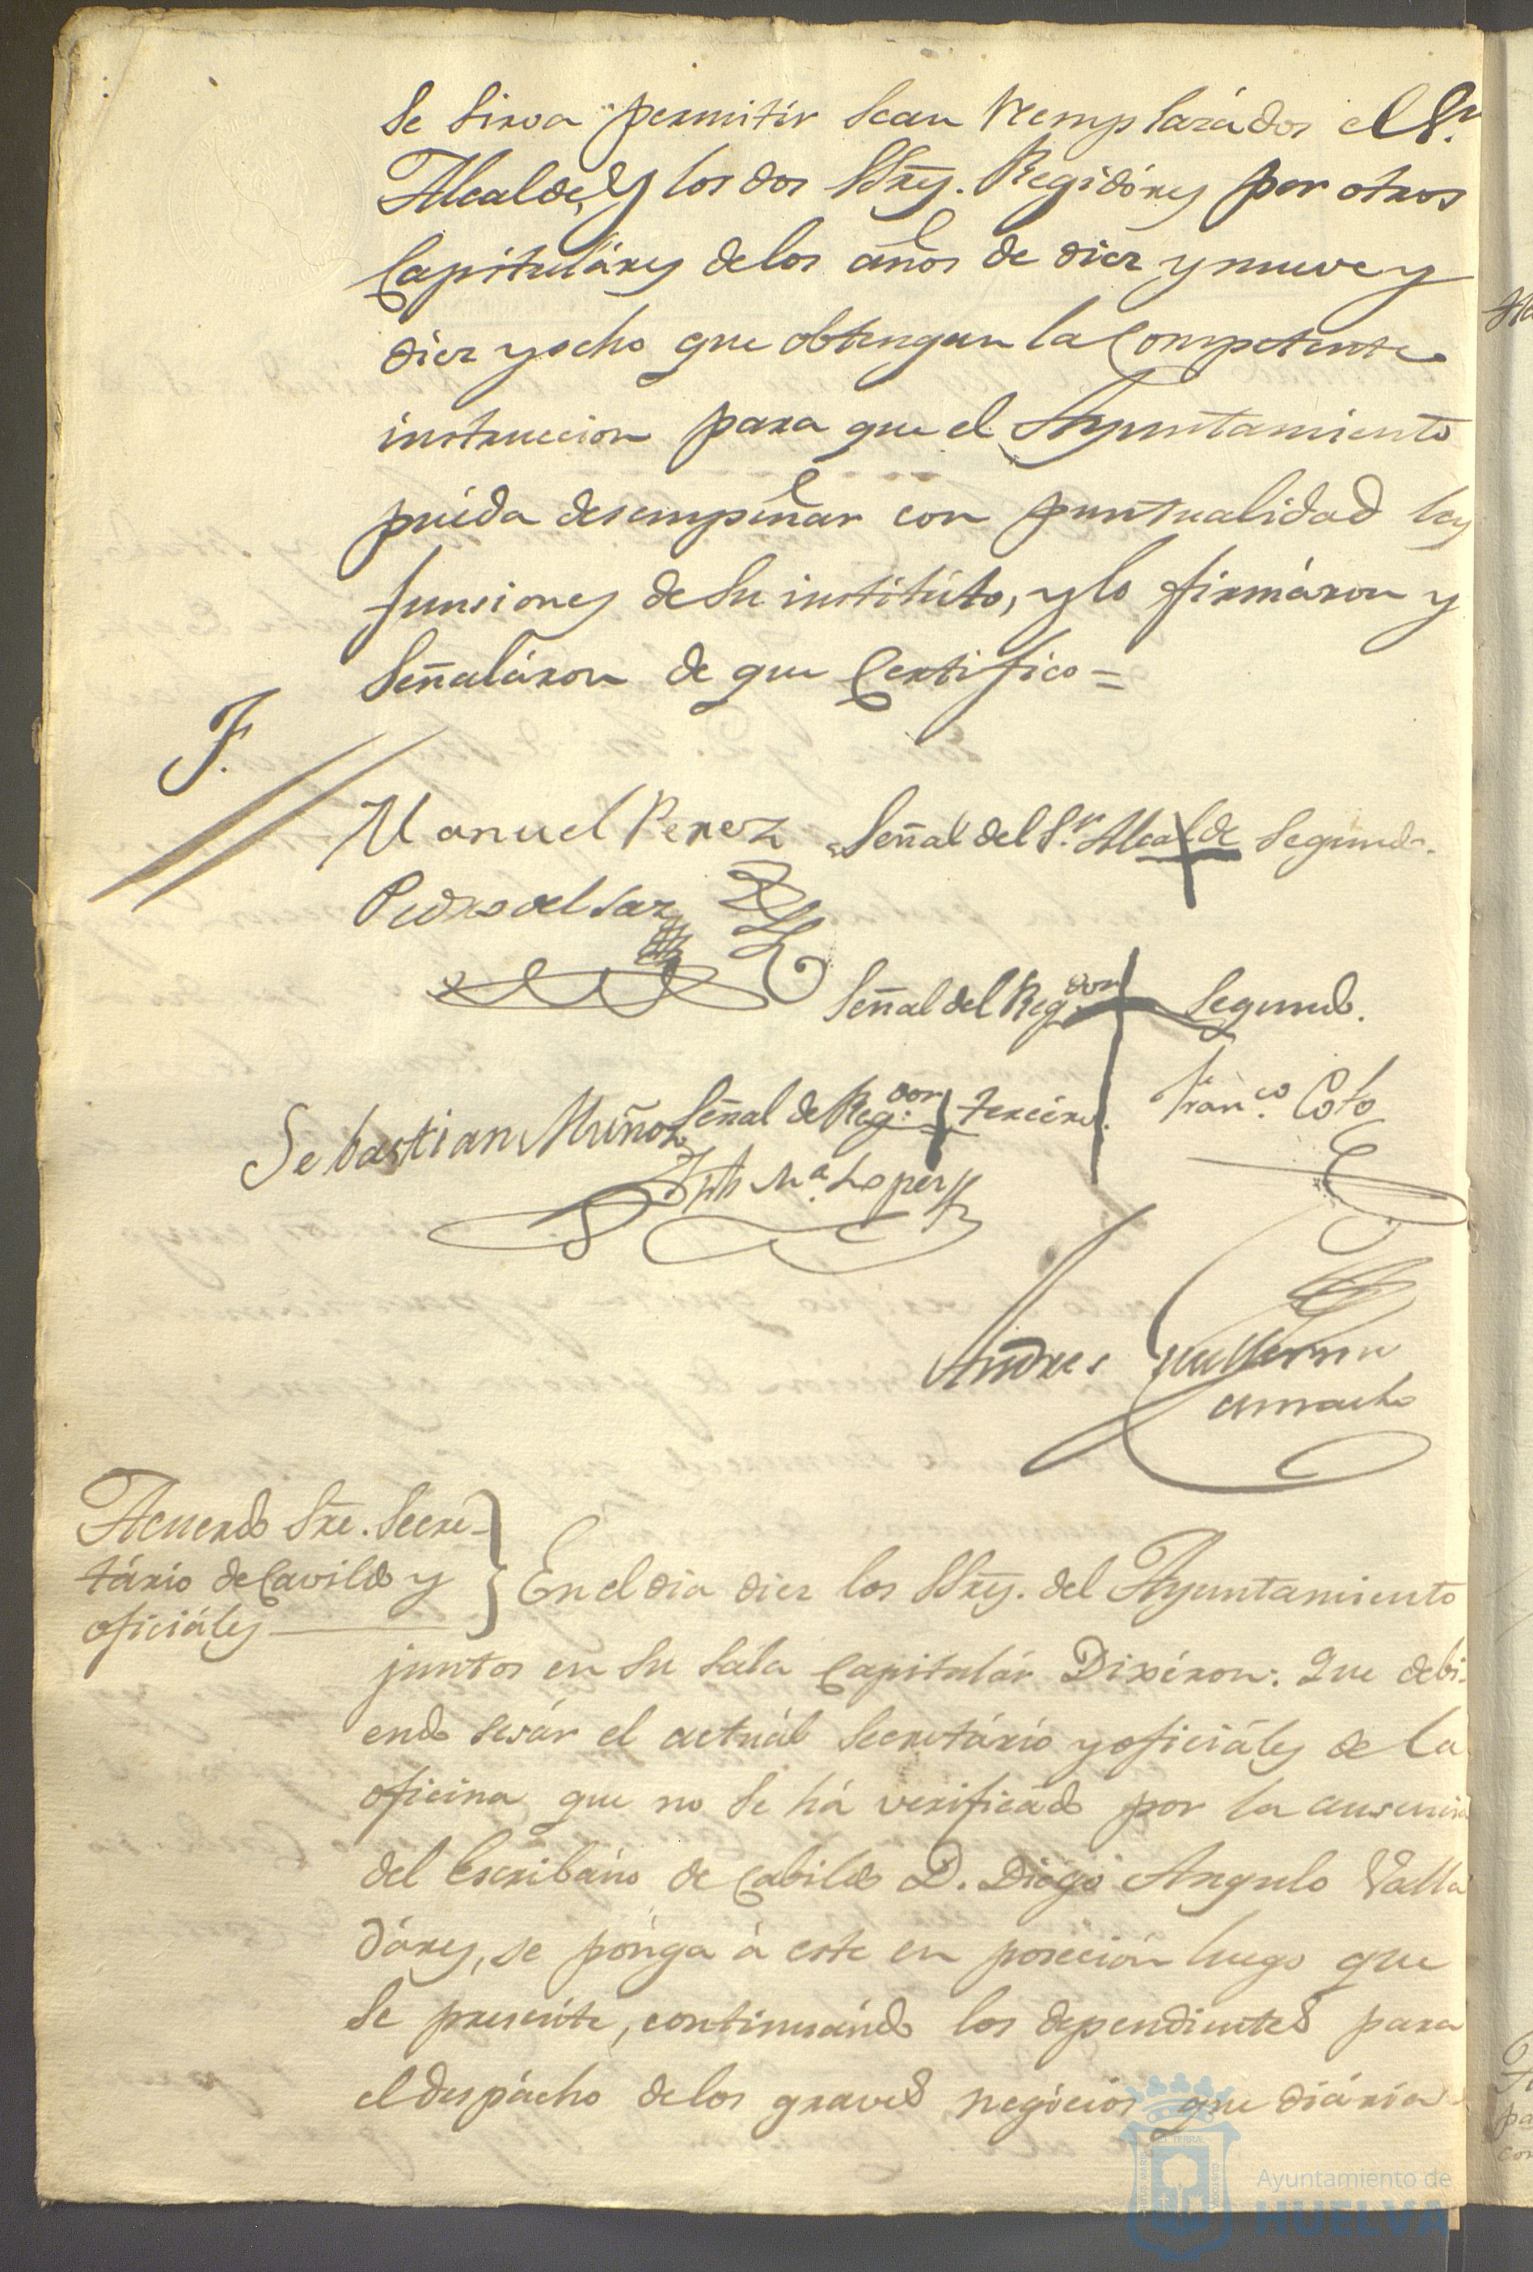 se sirva permitir sean remplazádos el Sr.
Alcalde, y los dos SSres. Regidóres por otros
Capituláres de los años de diez y nueve y
diez y ocho que obtengan la Competente
instruccion para que el Ayuntamiento
puéda desempeñar con puntualidad las
funsiones de su institúto, y lo firmáron y
Señaláron de que Certifico =
F.
Manuel Perez Señal del Sr. Alcalde Segundo.
Pedro del Saz
Señal del Regdor. Segundo.
Sebastian Muñoz Señal de Regdor. tercéro. Franco. Coto
Jph Ma. Lopez
Andres Guillermo
Camacho
Acuerdo Sre. Secre-
tário de Cavildo y
oficiáles
En el dia diez los SSres. del Ayuntamiento
juntos en su sala Capitulár Dixéron: Que debi-
endo sesár el actuál Secretário y oficiáles de la
oficina que no se há verificádo por la ausencia
del Escribáno de Cabildo D. Diego Angulo Valla
dáres, se pónga á este en poseción luego que
se presénte, continuándo los dependientes para
el despácho de los graves negócios que diária
Ayuntamiento de
HUELVA